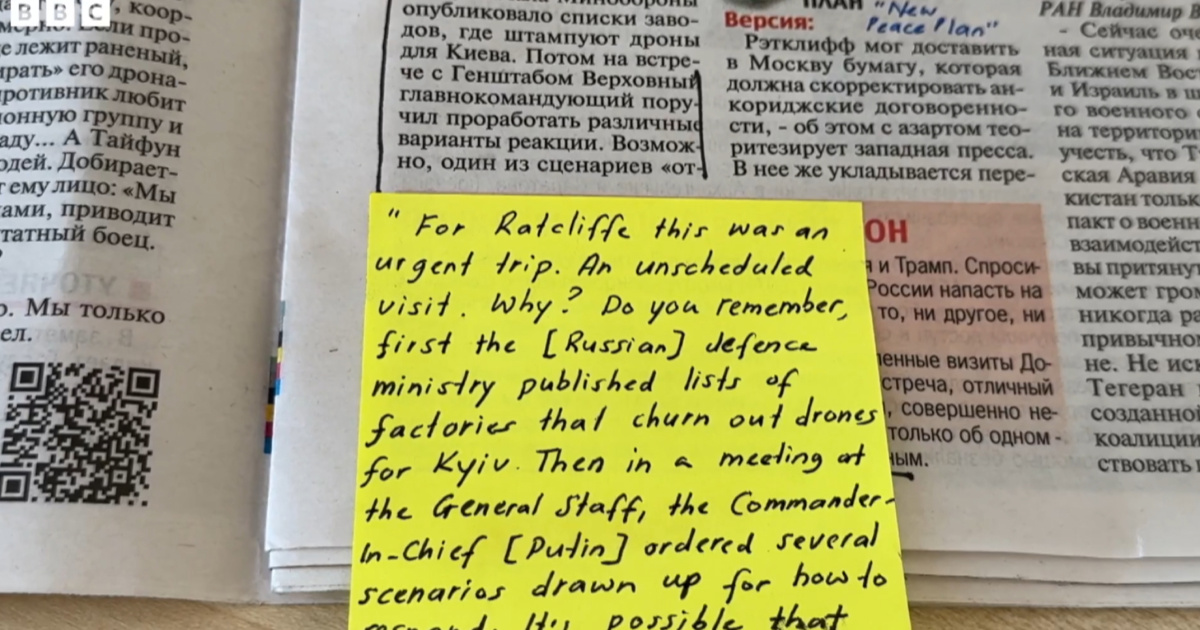 BBC
коор-
ли про-
е лежит раненый,
ирать» его дрона-
противник любит
ионную группу и
аду... А Тайфун
одей. Добирает-
т ему лицо: «Мы
ками, приводит
татный боец.
о. Мы только
ел.
опубликовало списки заво-
дов, где штампуют дроны
для Киева. Потом на встре-
че с Генштабом Верховный
главнокомандующий пору-
чил проработать различные
варианты реакции. Возмож-
но, один из сценариев «от-
ПЛАН "New
Версия: Peace Plan"
Рэтклифф мог доставить
в Москву бумагу, которая
должна скорректировать ан-
кориджские договоренно-
сти, - об этом с азартом тео-
ретизирует западная пресса.
В нее же укладывается пере-
РАН Владимир В
- Сейчас оче
ная ситуация
Ближнем Вост
и Израиль в ш
го военного
на территори
учесть, что Т
ская Аравия
кистан тольк
пакт о военн
взаимодейст
вы притянут
может гром
никогда ра
привычном
не. Не иск
Тегеран
созданной
коалици
ствовать
"For Ratcliffe this was an
urgent trip. An unscheduled
visit. Why? Do you remember,
first the [Russian] defence
ministry published lists of
factories that churn out drones
for Kyiv. Then in a meeting at
the General Staff, the Commander-
In-Chief [Putin] ordered several
scenarios drawn up for how to
respond. It's possible that
ОН
и Трамп. Спроси-
России напасть на
то, ни другое, ни
ленные визиты До-
стреча, отличный
, совершенно не-
только об одном -
ным.